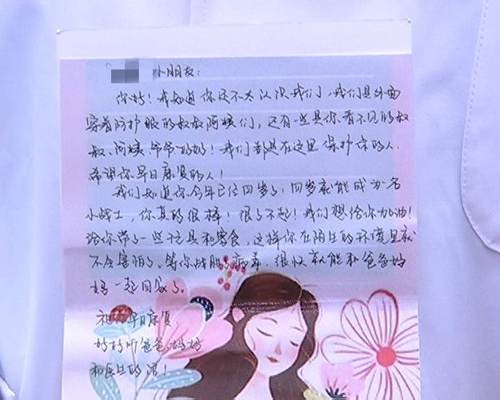 小朋友：
你好！我知道你还不太认识我们，我们是外面
穿着防护服的叔叔阿姨们，还有一些是你看不见的叔
叔、阿姨、爷爷奶奶！我们都是在这里保护你的人、
希望你早日康复的人！
我们知道你今年已经四岁了，四岁就能成为一名
小战士，你真的很棒！很了不起！我们想给你加油！
给你带了一些玩具和零食，这样你在陌生的环境里就
不会害怕了，等你战胜了病毒，很快就能和爸爸妈
妈一起回家了。
祝你早日康复
好好听爸爸、妈妈
和医生的话！